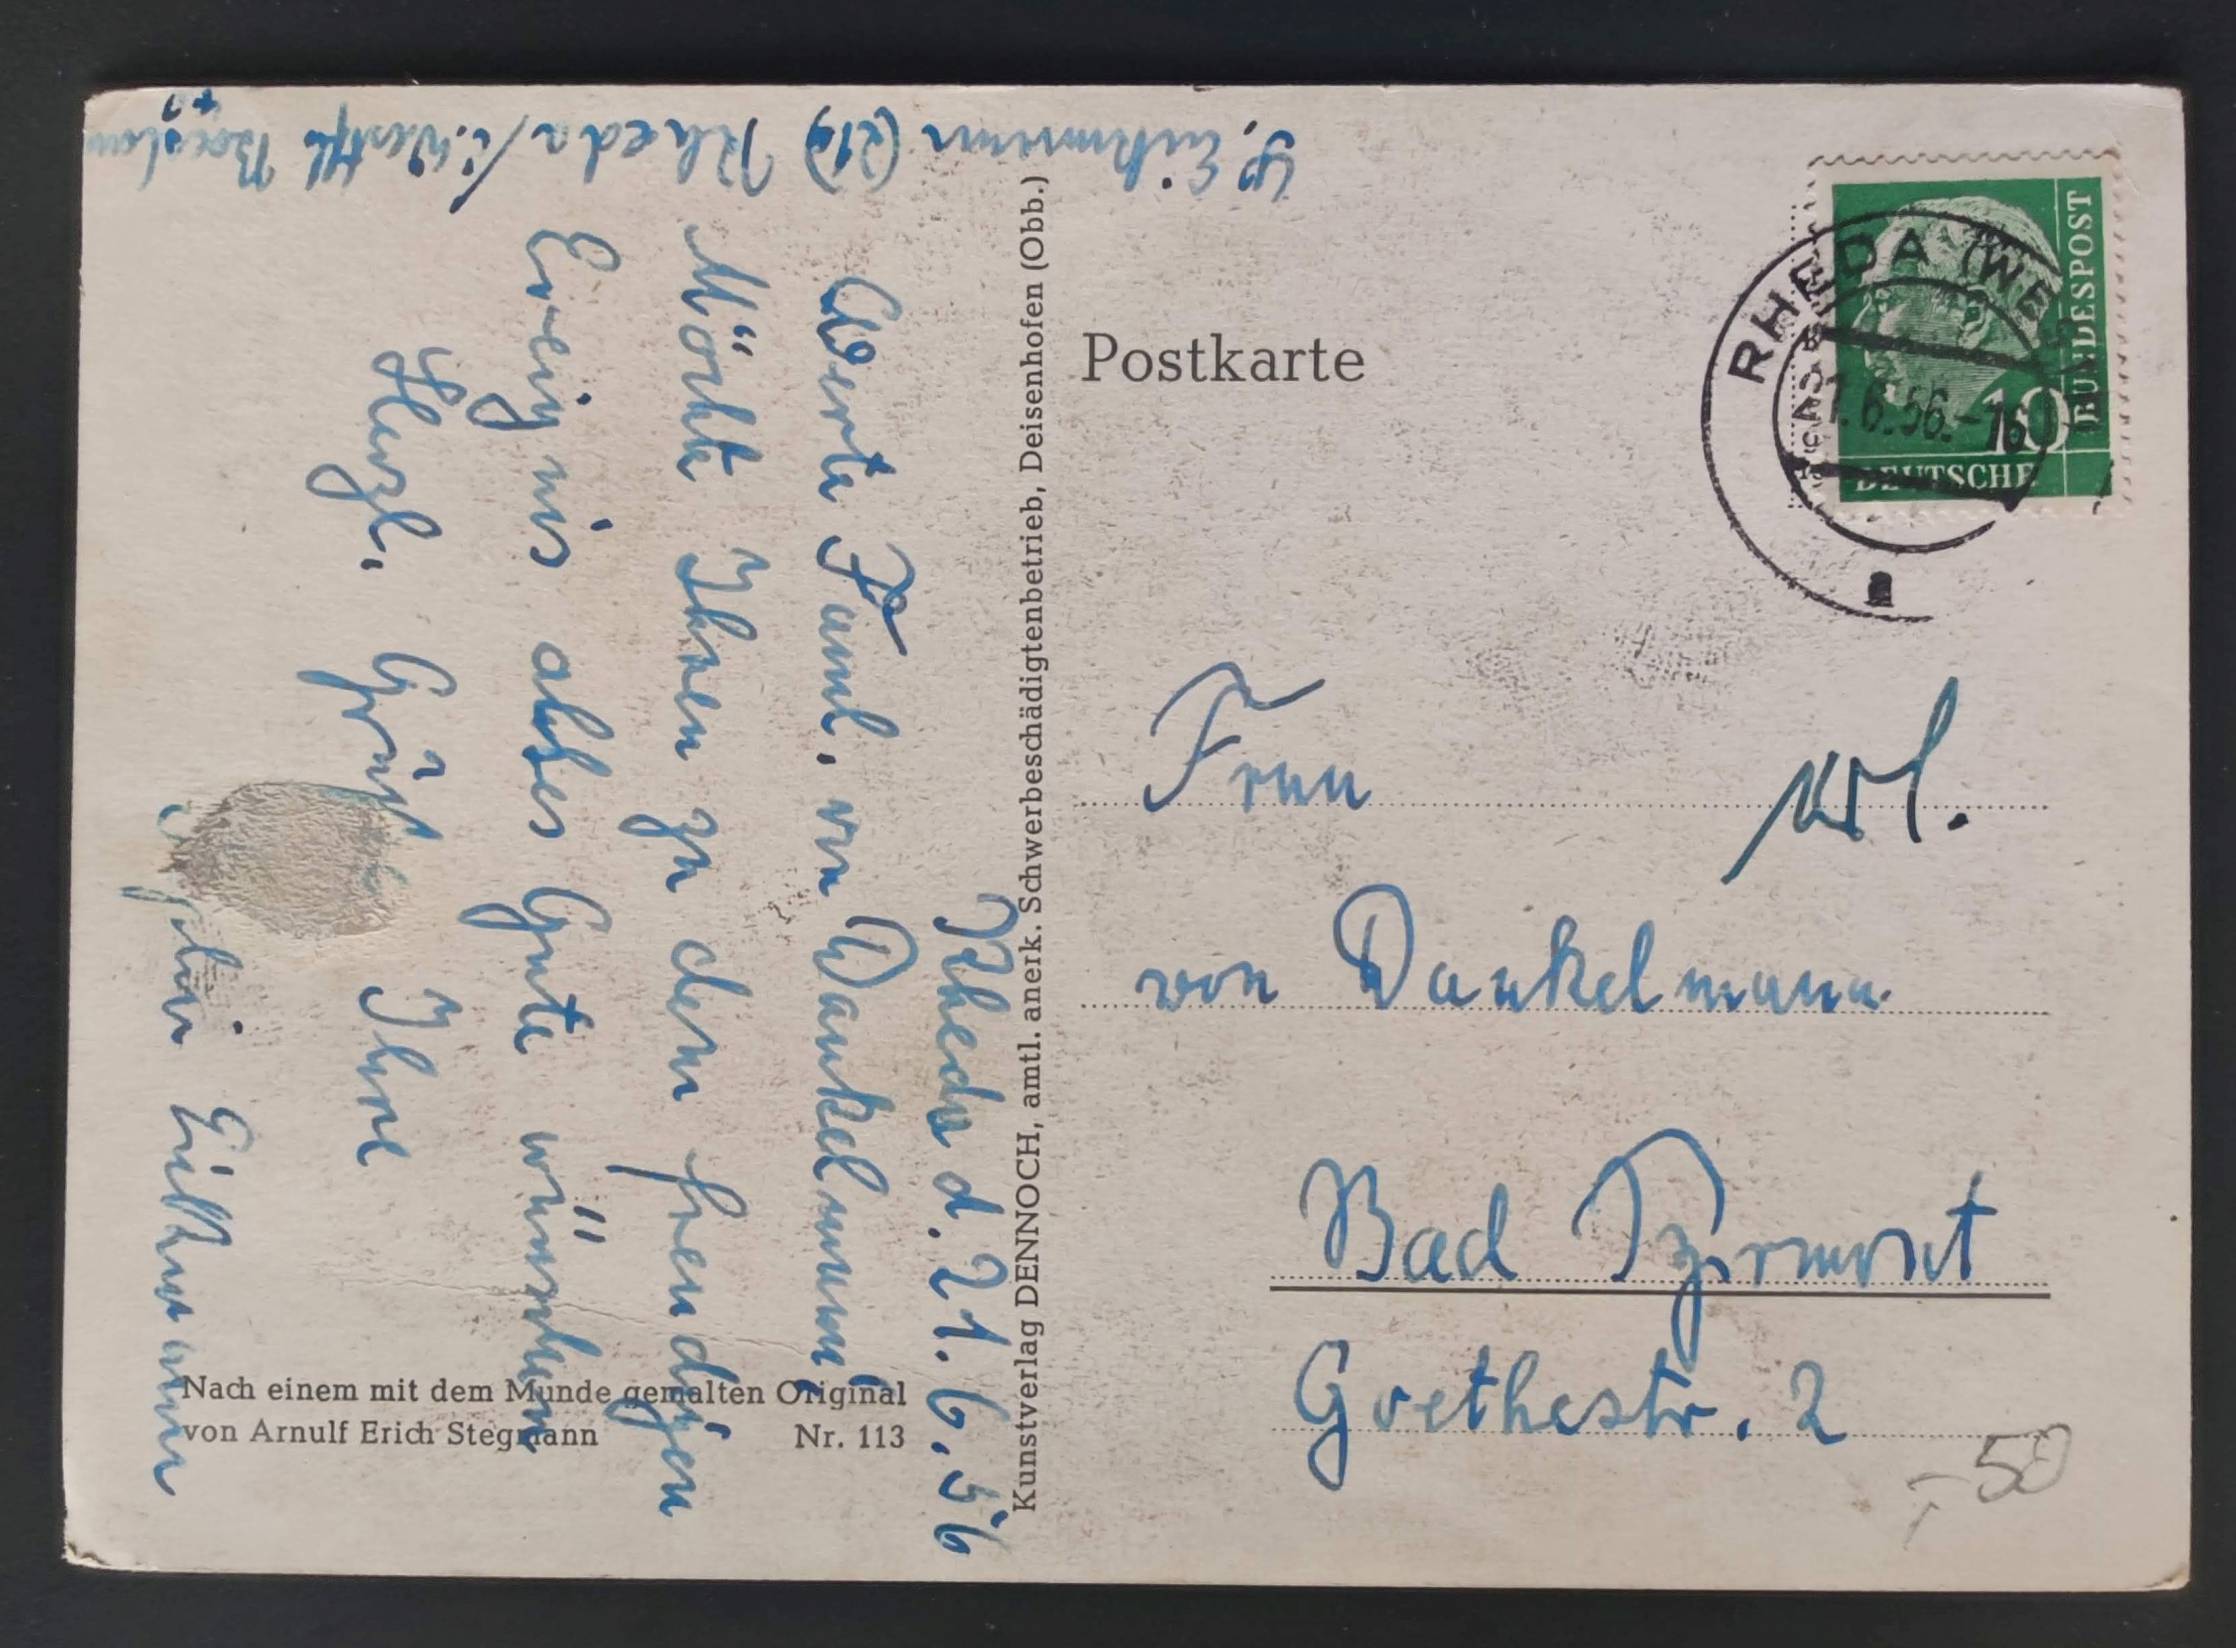 S. Eickmann (21a) Rheda / i. Westfl.
Rheda d. 21.6.56
Werte Faml. von Dankelmann!
Möchte Ihnen zu dem freudigen
Ereignis alles Gute wünschen
Herzl. Grüße Ihre
Eickmann
Nach einem mit dem Munde gemalten Original
von Arnulf Erich Stegmann Nr. 113
Kunstverlag DENNOCH, amtl. anerk. Schwerbeschädigtenbetrieb, Deisenhofen (Obb.)
Postkarte
RHEDA (WESTF)
21.6.56.-16
a
10
DEUTSCHE
BUNDESPOST
Frau
von Dankelmann
Bad Pyrmont
Goethestr. 2
-,50